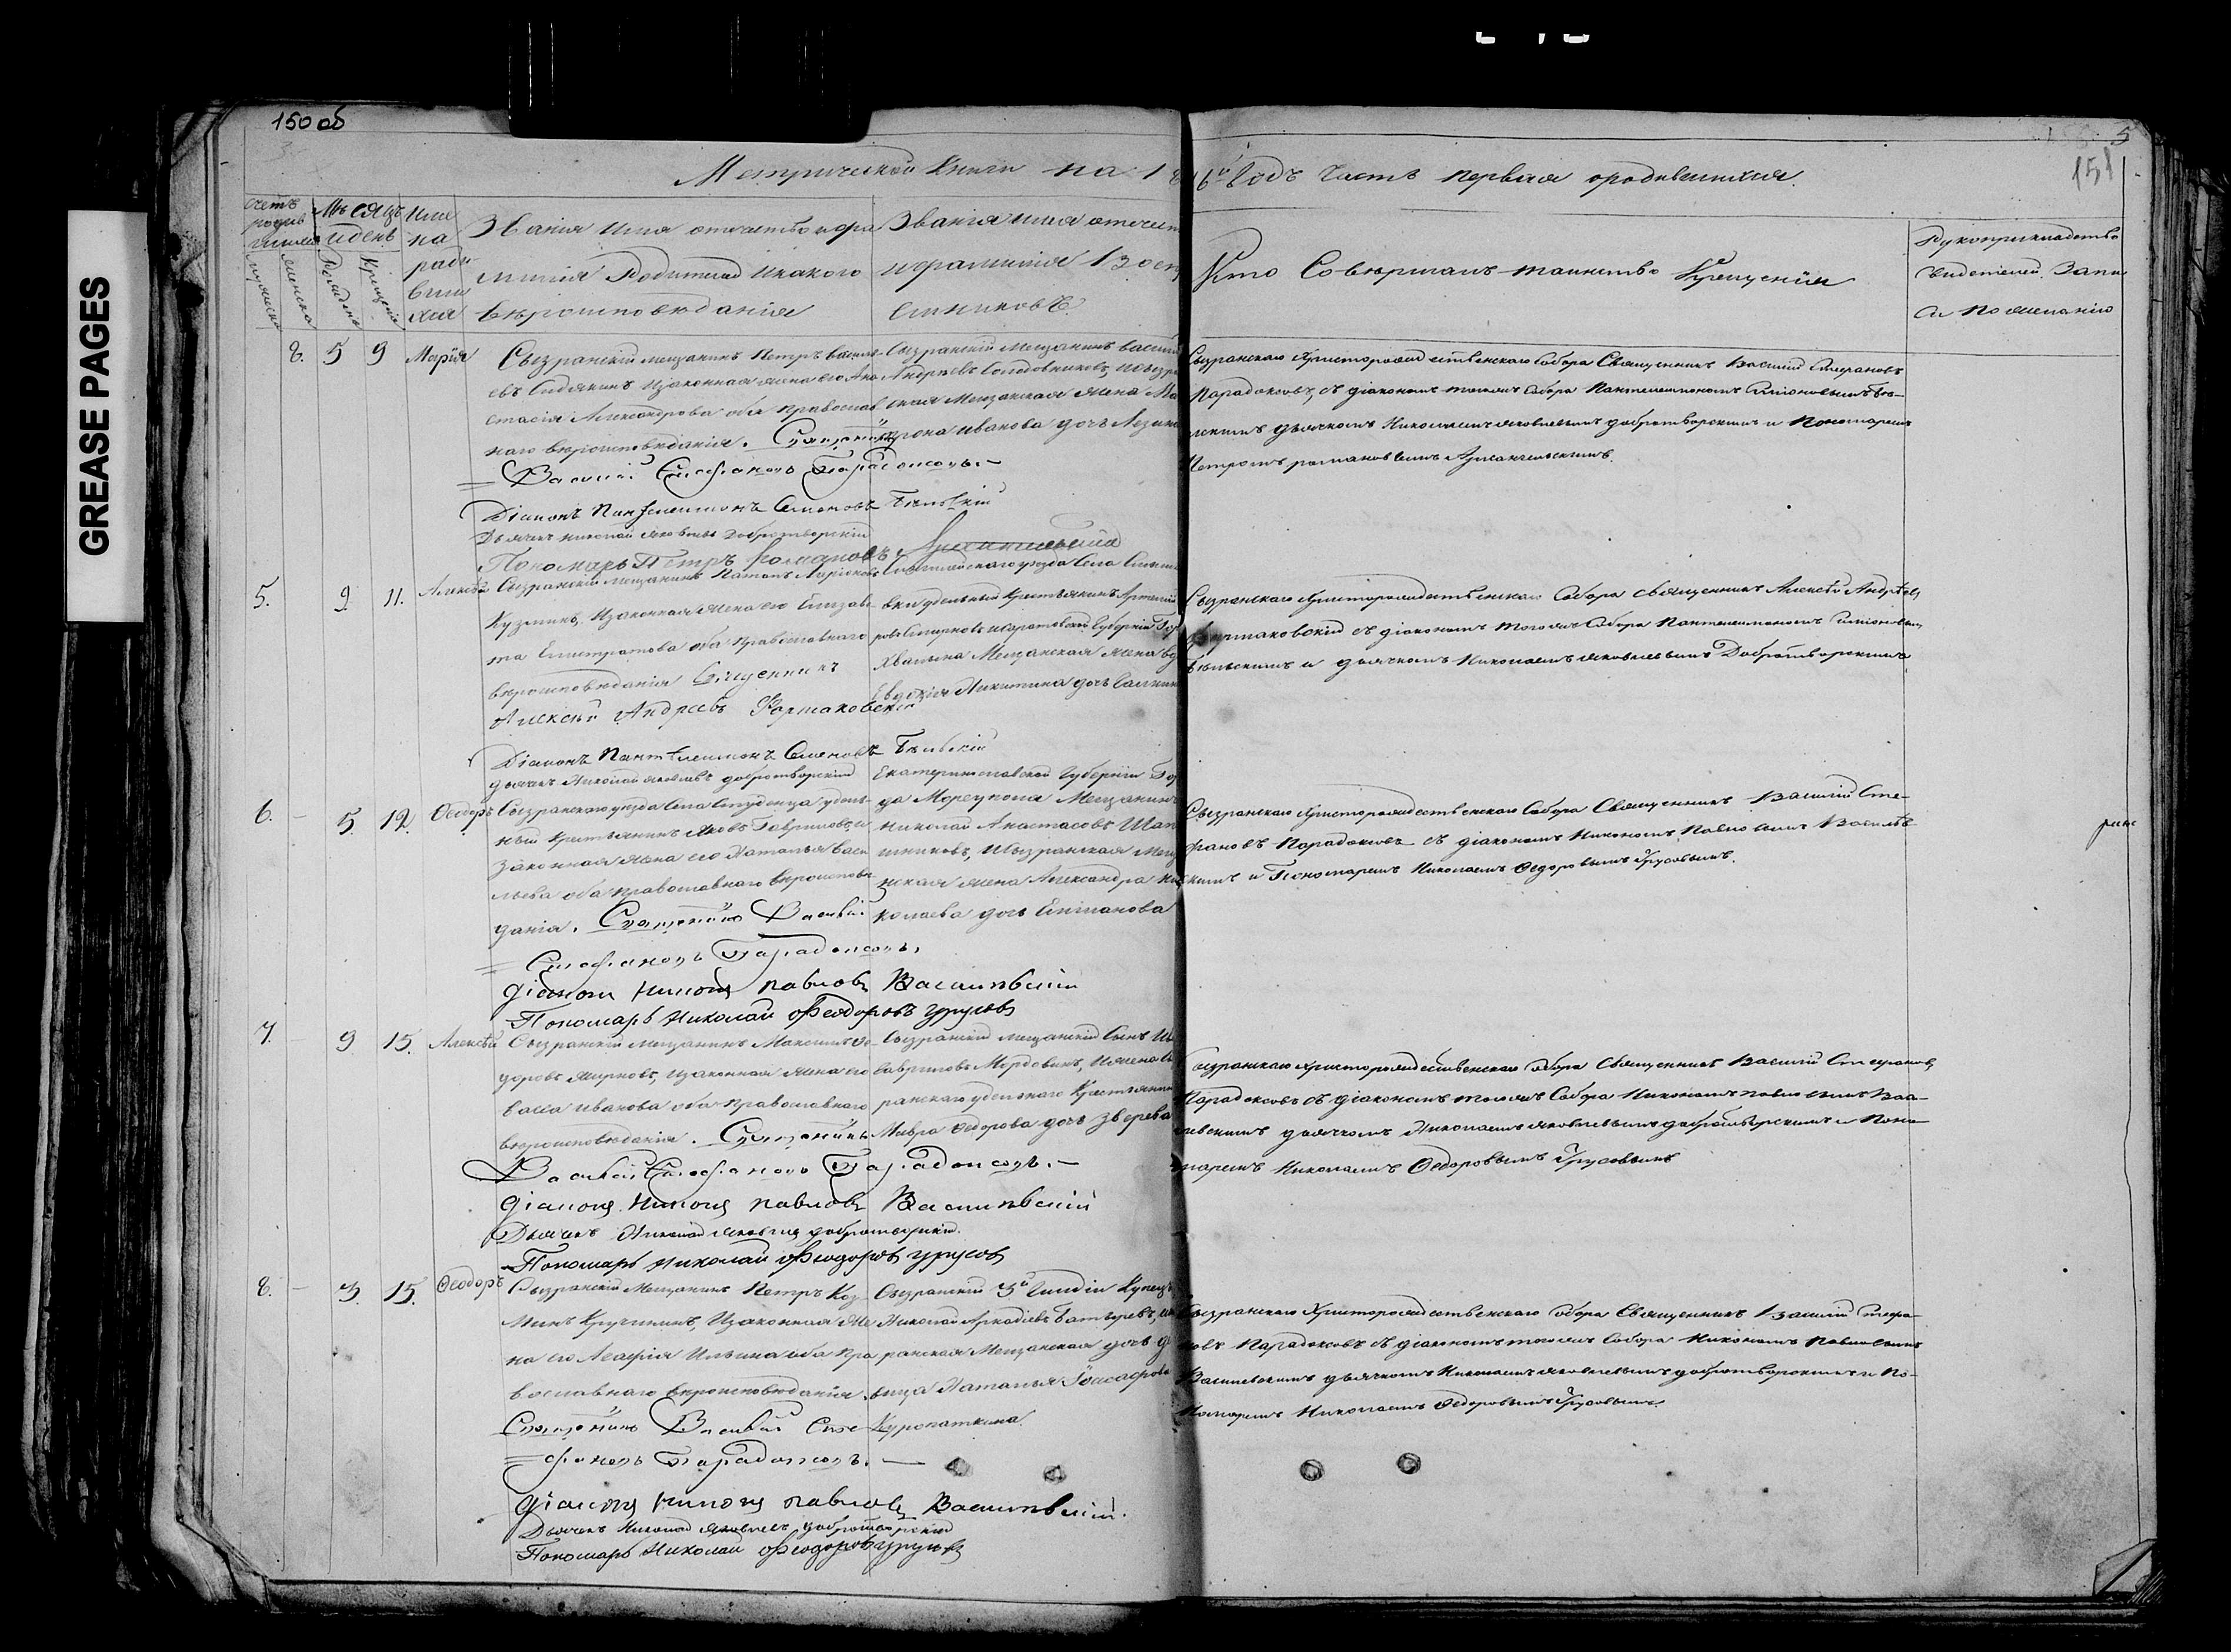 GREASE PAGES
150 об
5
151
Метрической книги на 18 6й годъ часть первая о родившихся.
Счетъ родившихся
мужеска
женска
Мѣсяцъ и день
Рожденія
Крещенія
Имена родившихся
Званія имя отчество и фамилія Родителей и какого вѣроисповѣданія
Званія имя отчест
и фамилія Воспр
емниковъ
Кто Совершалъ таинство Крещенія
Рукоприкладство
свидѣтелей Запи
си по желанію
8. 5 9 Марія
Сызранскій мещанинъ Петръ Василь-
евъ и законная жена его Ана-
стасія Александрова оба православ
наго вѣроисповѣданія. Священникъ
Василій Стефановъ Парадоксовъ.-
Діаконъ Пантелеимонъ Семеновъ Бѣльскій
Дьячекъ Николай Яковлевъ Добротворскій
Пономарь Петръ Романовъ Архангельскій
Сызранскій мещанинъ Васил
Андреевъ Солодовниковъ, и Сызра
ская мещанская жена Ма
трона Иванова дочь
Сызранскаго Христорождественскаго Собора Священникъ Василій Стефановъ
Парадоксовъ, съ діакономъ тогожъ Собора Пантелеимономъ Симіоновымъ Бѣ-
льскимъ дьячкомъ Николаемъ Яковлевымъ Добротворскимъ и Пономаремъ
Петромъ Романовымъ Архангельскимъ.
5. 9 11. Алексѣй
Сызранскій мещанинъ Ларіоновъ
Кузминъ, и законная жена его Елизаве-
та Елистратова оба православнаго
вѣроисповѣданія Священникъ
Алексѣй Андреевъ Фармаковскій
Діаконъ Пантелеимонъ Семеновъ Бѣльскій
дьячекъ Николай Яковлевъ Добротворскій
уѣзда Села
вки удельный крестьянинъ Артемій
ровъ Смирновъ и Саратовской Губерніи Гор
Хвалына Мещанская жена
Евдокія Никитина дочь
Сызранскаго Христорождественскаго Собора священникъ Алексѣй Андреевъ
Фармаковскій съ діакономъ тогожъ Собора Пантелеимономъ Симіоновымъ
Бѣльскимъ и дьячкомъ Николаемъ Яковлевымъ Добротворскимъ
6. - 5. 12. Ѳеодоръ
Сызранскаго уѣзда Села Студенца удель-
ный крестьянинъ Яковъ Гавриловъ, и
законная жена его Наталья Васи
льева оба православнаго вѣроисповѣ
данія. Священникъ Василій
Стефановъ Парадоксовъ.
Діаконъ Никонъ Павловъ Васильевскій
Пономарь Николай Ѳеодоровъ Урусовъ
Екатеринославской Губерніи Го
да Мореуполя Мещанинъ
Николай Анастасовъ Шап
шниковъ, и Сызранская Мещ
нская жена Александра Ни
колаева дочь Епифанова
Сызранскаго Христорождественскаго Собора Священникъ Василій Сте-
фановъ Парадоксовъ съ діакономъ Никономъ Павловымъ Васильев
скимъ и Пономаремъ Николаемъ Ѳедоровымъ Урусовымъ.
7. - 9 15. Алексѣй
Сызранскій мещанинъ Максимъ Ѳе-
доровъ Жирновъ, и законная жена его
Васса Иванова оба православнаго
вѣроисповѣданія. Священникъ
Василій Стефановъ Парадоксовъ.-
Діаконъ Никонъ Павловъ Васильевскій
Дьячекъ Николай Яковлевъ Добротворскій.
Пономарь Николай Ѳеодоровъ Урусовъ
Сызранскій мещанскій сынъ
Гавриловъ Мордовинъ, и жена
ранскаго удельнаго Крестьянина
Мавра Ѳедорова дочь Зверева
Сызранскаго Христорождественскаго Собора Священникъ Василій Стефановъ
Парадоксовъ съ діакономъ тогожъ Собора Никономъ Павловымъ Васи-
левскимъ дьячкомъ Николаемъ Яковлевымъ Добротворскимъ и Поно-
маремъ Николаемъ Ѳедоровымъ Урусовымъ
8. - 3. 15. Ѳеодоръ
Сызранскій Мещанинъ Петръ Коз-
минъ Кручининъ, и законная же
на его Агафія Ильина оба пра
вославнаго вѣроисповѣданія.
Священникъ Василій Сте-
фановъ Парадоксовъ.-
Діаконъ Никонъ Павловъ Васильевскій.
Дьячекъ Николай Яковлевъ Добротворскій
Пономарь Николай Ѳеодоровъ Урусовъ
Сызранскій 3й Гильдіи Купецъ
Николай Аркадіевъ
ранская Мещанская дочь д
вица Наталья Іоасафова
Куропаткина.
Сызранскаго Христорождественскаго Собора Священникъ Василій Стефа-
новъ Парадоксовъ съ діакономъ тогожъ Собора Никономъ Павловымъ
Василевскимъ дьячкомъ Николаемъ Яковлевымъ Добротворскимъ и По-
номаремъ Николаемъ Ѳедоровымъ Урусовымъ.